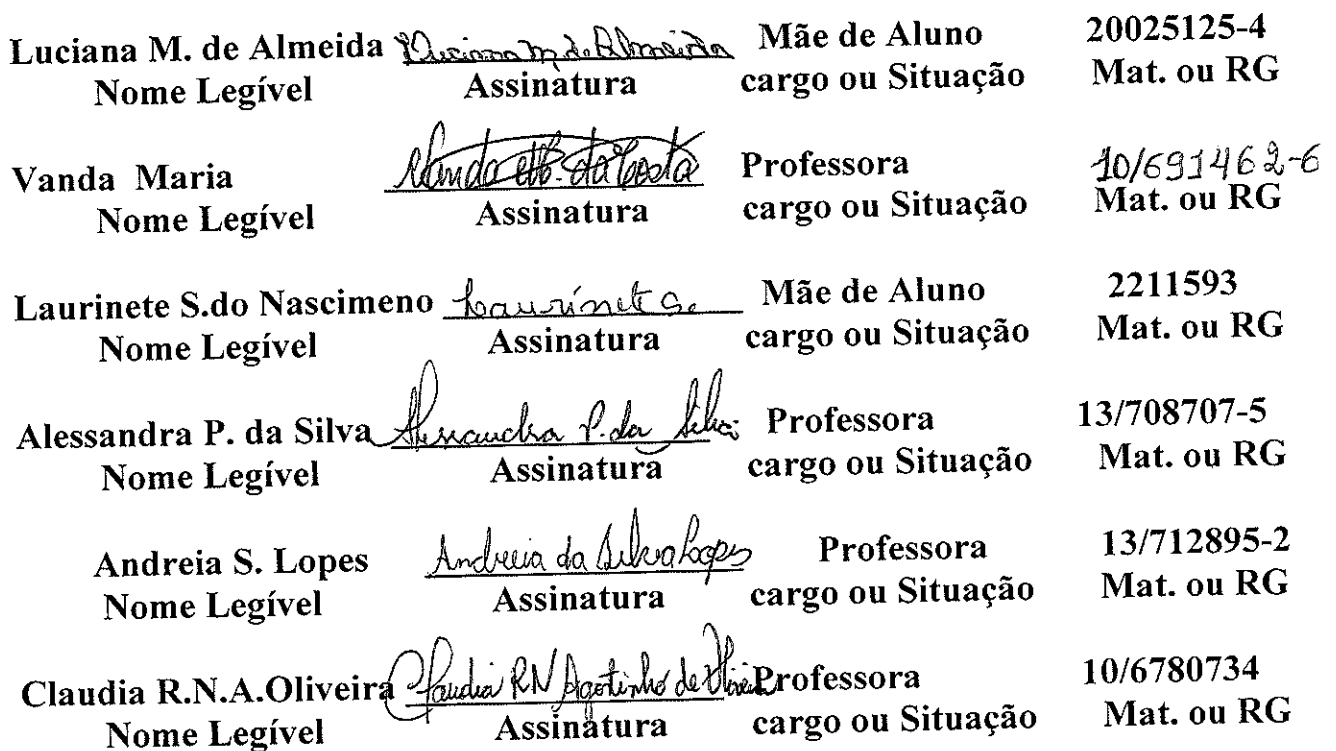 Luciana M. de Almeida Luciana M. de Almeida Mãe de Aluno 20025125-4
Nome Legível Assinatura cargo ou Situação Mat. ou RG
Vanda Maria Vanda M. da Costa Professora 10/691462-6
Nome Legível Assinatura cargo ou Situação Mat. ou RG
Laurinete S.do Nascimeno Laurinete S. Mãe de Aluno 2211593
Nome Legível Assinatura cargo ou Situação Mat. ou RG
Alessandra P. da Silva Alessandra P. da Silva Professora 13/708707-5
Nome Legível Assinatura cargo ou Situação Mat. ou RG
Andreia S. Lopes Andreia da Silva Lopes Professora 13/712895-2
Nome Legível Assinatura cargo ou Situação Mat. ou RG
Claudia R.N.A.Oliveira Claudia RN Agostinho de Oliveira Professora 10/6780734
Nome Legível Assinatura cargo ou Situação Mat. ou RG